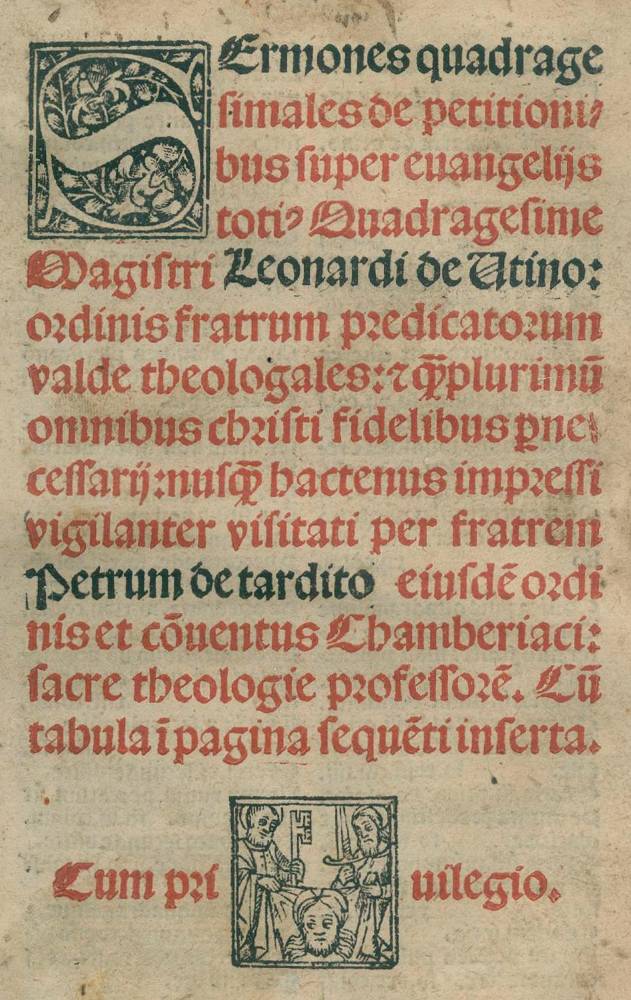 SErmones quadrage
simales de petitioni⸗
bus super euangelijs
totiꝰ Quadragesime
Magistri Leonardi de Utino:
ordinis fratrum predicatorum
valde theologales: ⁊ q̃ꝫplurimū
omnibus christi fidelibus ꝑne⸗
cessarij: nusq̃ꝫ hactenus impressi
vigilanter visitati per fratrem
Petrum de tardito eiusdē ordi
nis et cōuentus Chamberiaci:
sacre theologie professorē. Cū
tabula ī pagina sequēti inserta.
Cum pri uilegio.